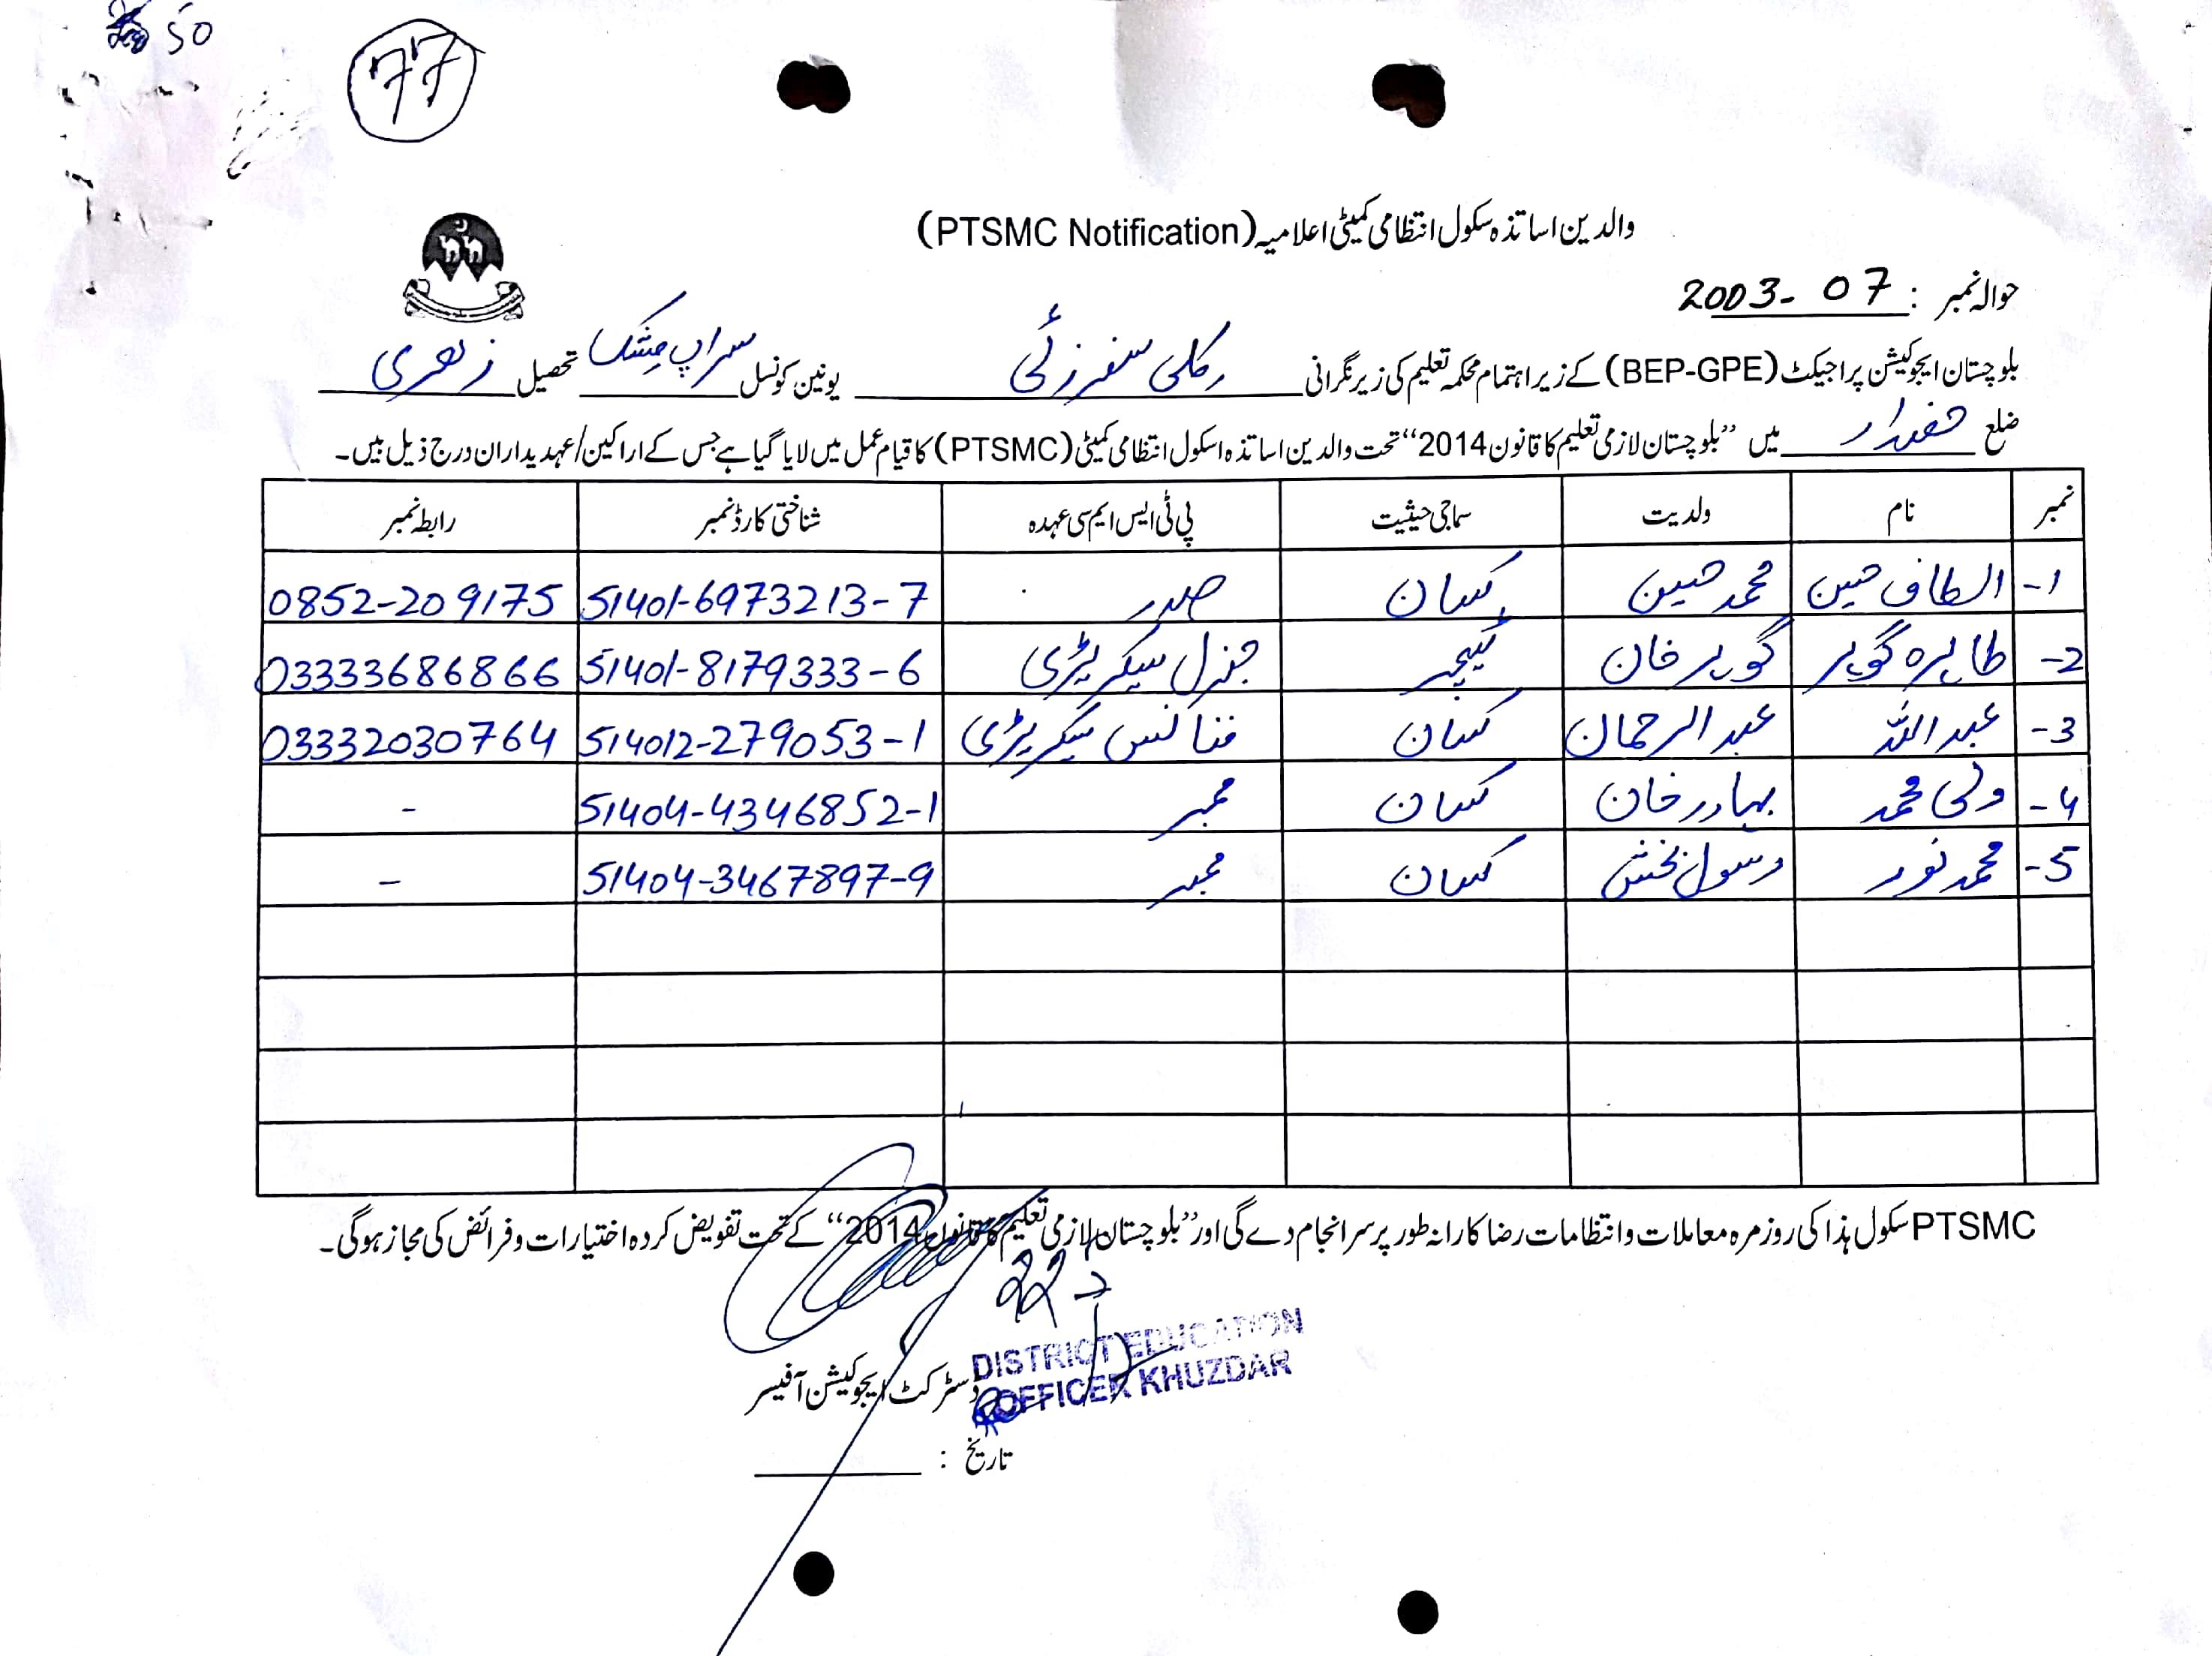 50
77
والدین اساتذہ سکول انتظامی کمیٹی اعلامیہ (PTSMC Notification)
حوالہ نمبر : 2003-07
بلوچستان ایجوکیشن پراجیکٹ (BEP-GPE) کے زیر اہتمام محکمہ تعلیم کی زیر نگرانی کلی سفرزئی یونین کونسل سراپ مشک تحصیل زہری
ضلع خضدار میں ’’بلوچستان لازمی تعلیم کا قانون 2014‘‘ تحت والدین اساتذہ اسکول انتظامی کمیٹی (PTSMC) کا قیام عمل میں لایا گیا ہے جس کے اراکین/عہدیداران درج ذیل ہیں۔
نمبر نام ولدیت سماجی حیثیت پی ٹی ایس ایم سی عہدہ شناختی کارڈ نمبر رابطہ نمبر
1- الطاف حسین محمد حسین کسان صدر 51401-6973213-7 0852-209175
2- طاہرہ گوہر گوہر خان ٹیچر جنرل سیکریٹری 51401-8179333-6 03333686866
3- عبداللہ عبدالرحمان کسان فنانس سیکریٹری 514012-279053-1 03332030764
4- ولی محمد بہادر خان کسان ممبر 51404-4346852-1 -
5- محمد نور رسول بخش کسان ممبر 51404-3467897-9 -
PTSMC سکول ہذا کی روزمرہ معاملات و انتظامات رضاکارانہ طور پر سر انجام دے گی اور ’’بلوچستان لازمی تعلیم کا قانون 2014‘‘ کے تحت تفویض کردہ اختیارات و فرائض کی مجاز ہوگی۔
DISTRICT EDUCATION
OFFICER KHUZDAR
ڈسٹرکٹ ایجوکیشن آفیسر
تاریخ :